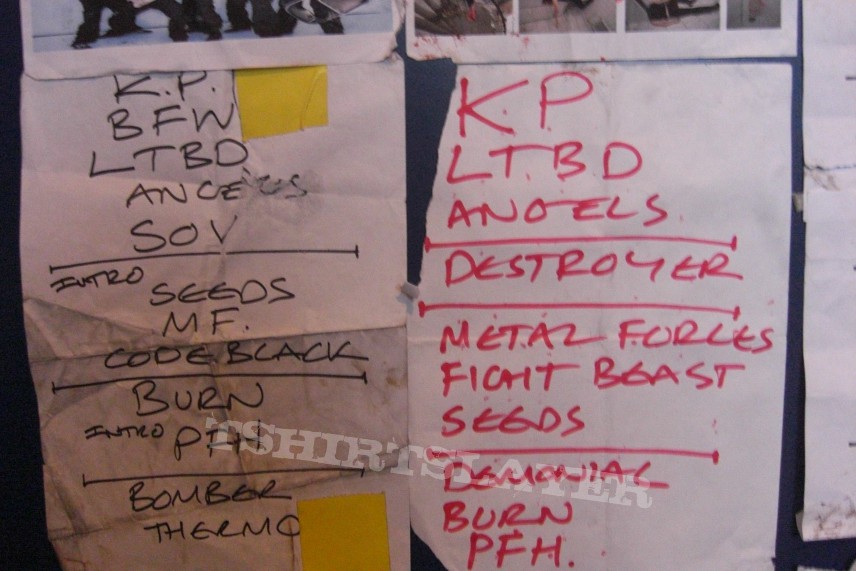 K.P.
BFW
LTBD
ANGELS
SOV
INTRO SEEDS
MF.
CODE BLACK
BURN
INTRO PFH
BOMBER
THERMO
KP
LT.BD
ANGELS
DESTROYER
METAL FORCES
FIGHT BEAST
SEEDS
DEMONIAC
BURN
PFH.
TSHIRTSLAYER